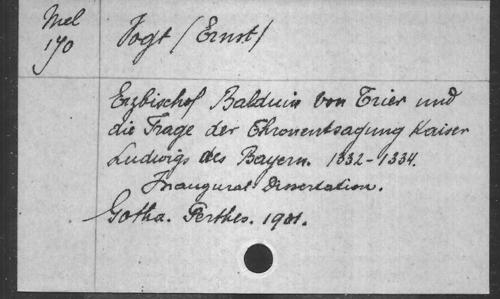 Mel
170
Vogt (Ernst)
Erzbischof Balduin von Trier und
die Frage der Thronentsagung Kaiser
Ludwigs des Bayern. 1332-1334.
Inaugural Dissertation.
Gotha. Perthes. 1901.